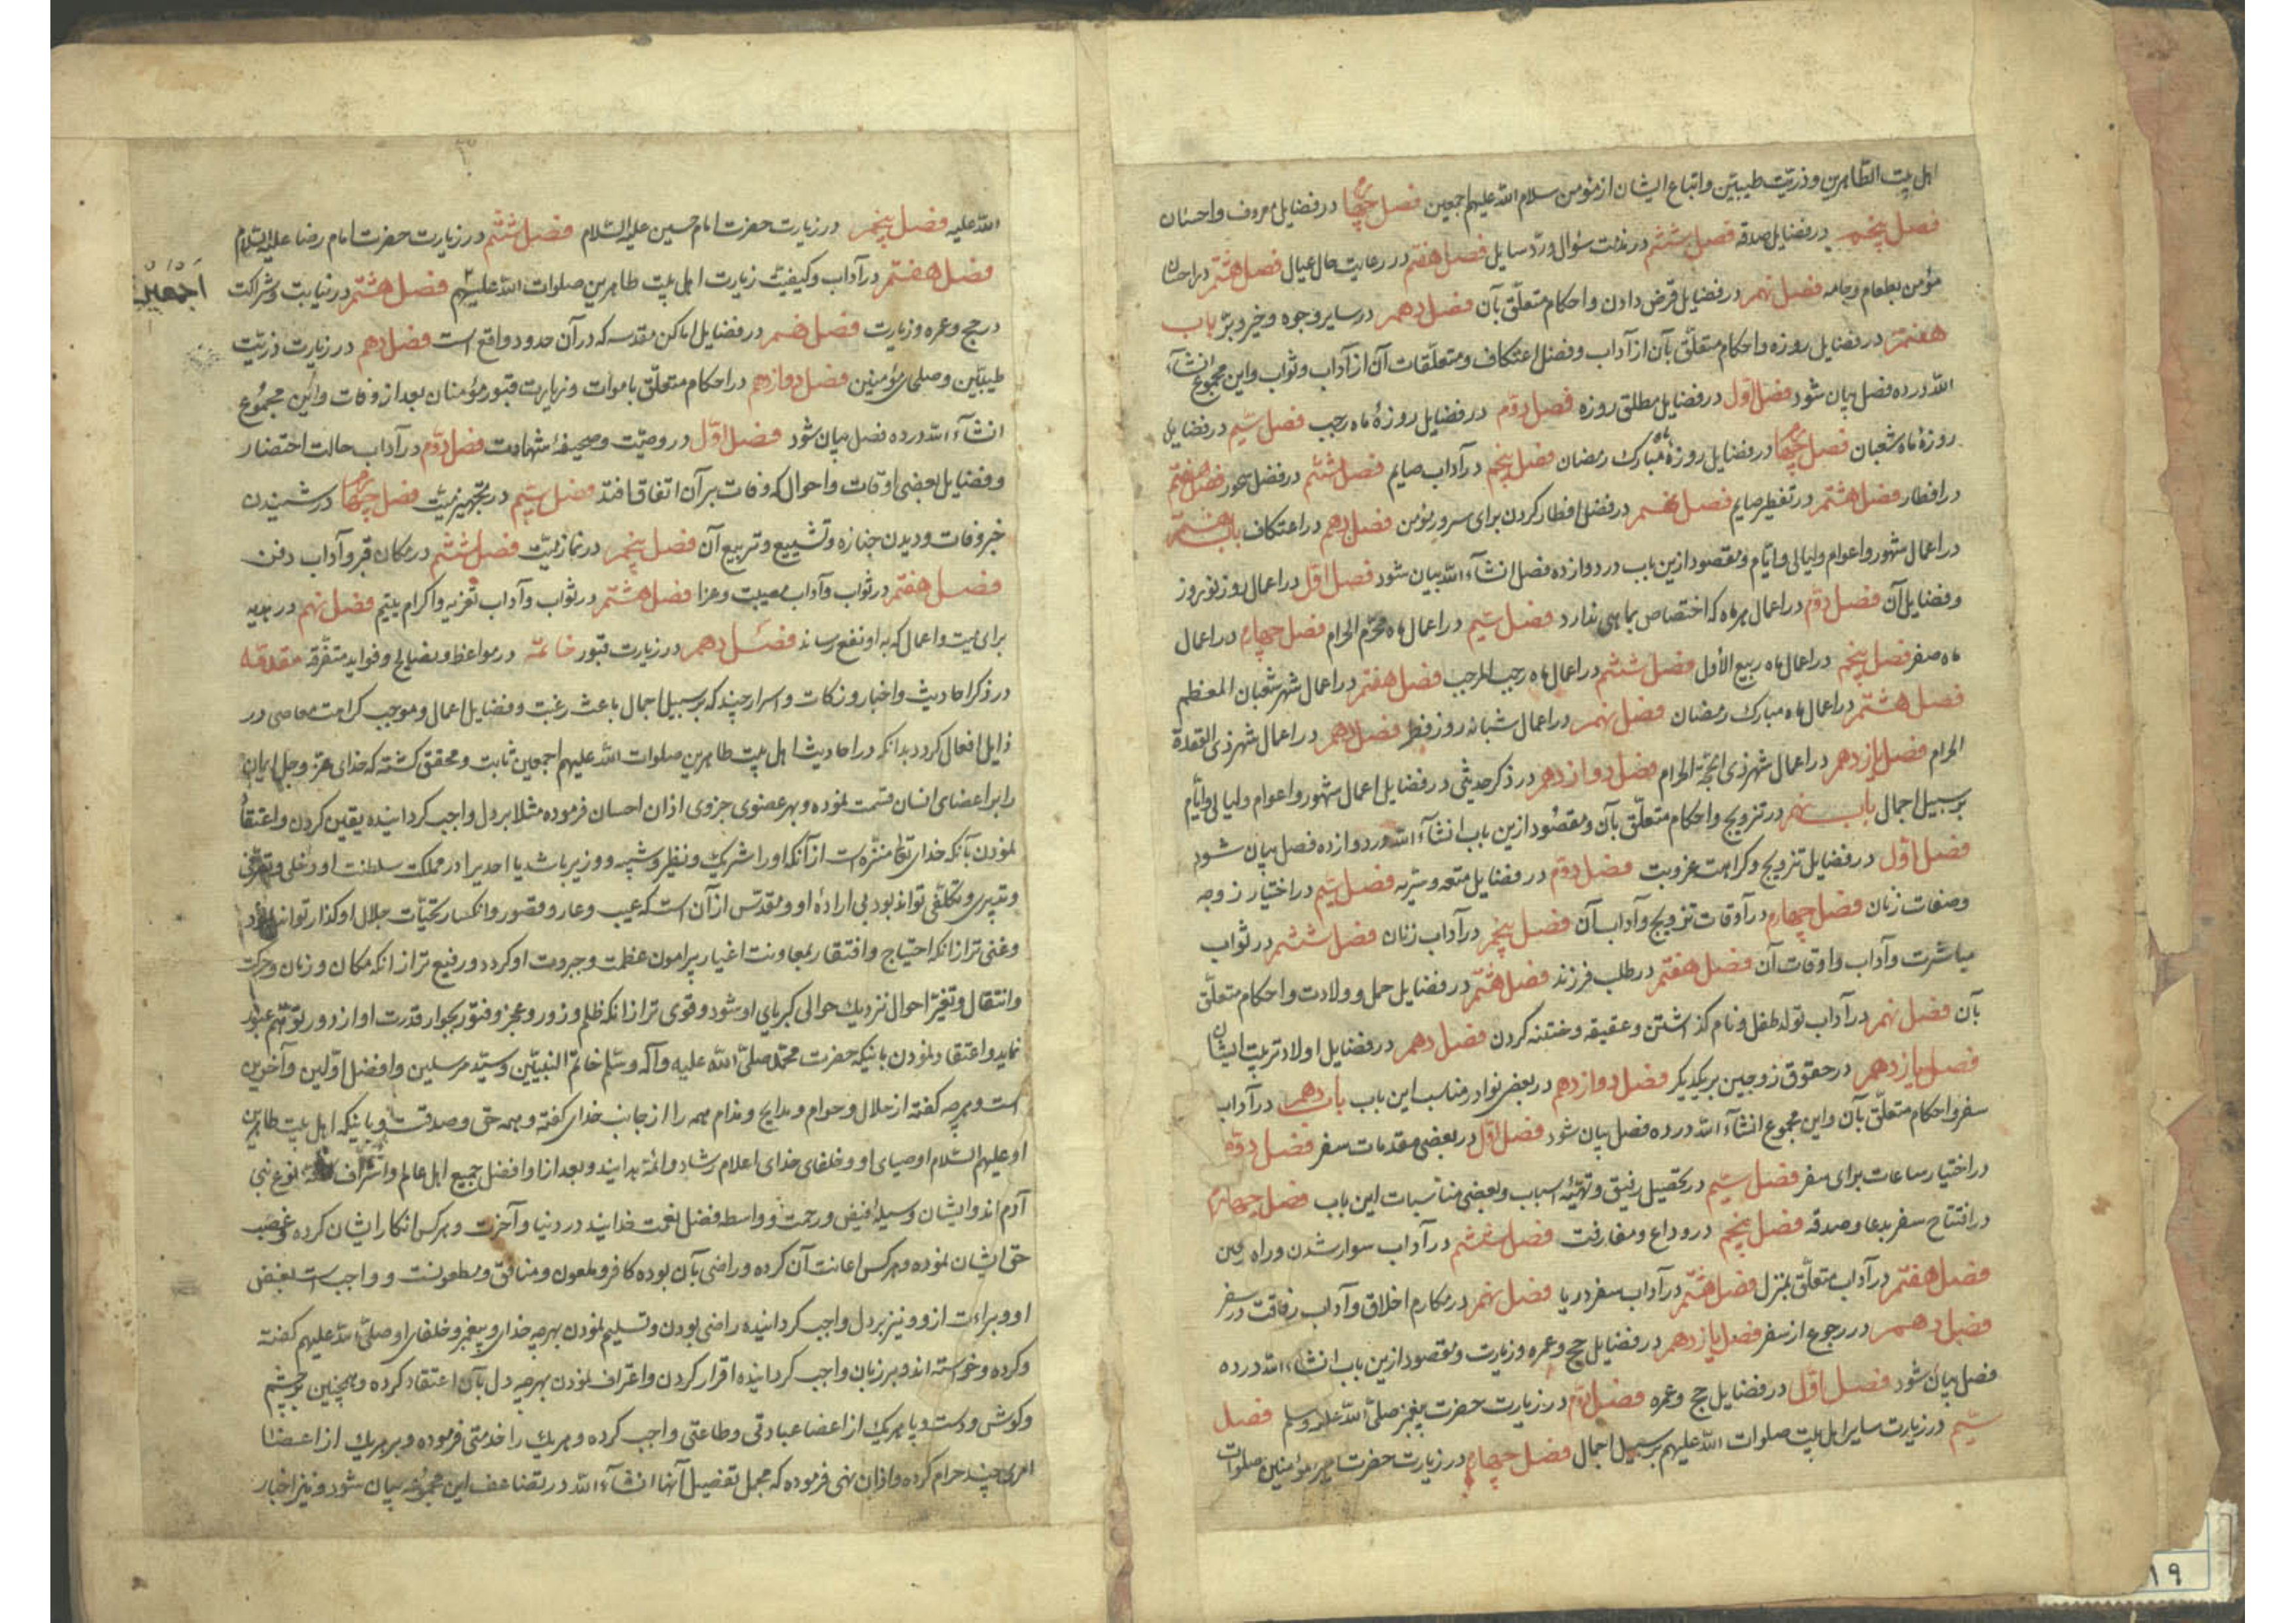 اهل بیت الطاهرین و ذریّت طیبین و اتباع ایشان از مؤمن سلام الله علیهم اجمعین فصل چهارم در فضایل معروف و احسان
فصل پنجم در فضایل صدقه فصل ششم در مذمت سؤال و ردّ سایل فصل هفتم در رعایت حال عیال فصل هشتم در احسان
مؤمن بطعام و جامه فصل نهم در فضایل قرض دادن و احکام متعلّق بآن فصل دهم در سایر وجوه و خیر و برّ باب
هفتم در فضایل روزه و احکام متعلّق بآن از آداب و فضل اعتکاف و متعلّقات آن از آداب و ثواب و این مجموع انشآء
الله در ده فصل بیان شود فصل اوّل در فضایل مطلق روزه فصل دوّم در فضایل روزهٔ ماه رجب فصل سیّم در فضایل
روزهٔ ماه شعبان فصل چهارم در فضایل روزهٔ ماه مبارک رمضان فصل پنجم در آداب صایم فصل ششم در فضل سحور فصل هفتم
در افطار فصل هشتم در تفطیر صایم فصل نهم در فضل افطار کردن برای سرور مؤمن فصل دهم در اعتکاف باب هشتم
در اعمال شهور و اعوام و لیالی و ایّام و مقصود ازین باب در دوازده فصل انشآء الله بیان شود فصل اوّل در اعمال روز نوروز
و فضایل آن فصل دوّم در اعمال هر ماه که اختصاص بماهی ندارد فصل سیّم در اعمال ماه محرّم الحرام فصل چهارم در اعمال
ماه صفر فصل پنجم در اعمال ماه ربیع الأول فصل ششم در اعمال ماه رجب المرجب فصل هفتم در اعمال شهر شعبان المعظم
فصل هشتم در اعمال ماه مبارک رمضان فصل نهم در اعمال شبانه روز فطر فصل دهم در اعمال شهر ذی القعدة
الحرام فصل یازدهم در اعمال شهر ذی الحجّة الحرام فصل دوازدهم در ذکر حدیثی در فضایل اعمال شهور و اعوام و لیالی و ایّام
بر سبیل اجمال باب نهم در تزویج و احکام متعلّق بآن و مقصُود ازین باب انشآء الله در دوازده فصل بیان شود
فصل اوّل در فضایل تزویج و کراهت عزوبت فصل دوّم در فضایل متعه و سرّیه فصل سیّم در اختیار زوجه
و صفات زنان فصل چهارم در آوقات تزویج و آداب آن فصل پنجم در آداب زنان فصل ششم در ثواب
مباشرت و آداب و اوقات آن فصل هفتم در طلب فرزند فصل هشتم در فضایل حمل و ولادت و احکام متعلّق
بآن فصل نهم در آداب تولد طفل و نام گذاشتن و عقیقه و ختنه کردن فصل دهم در فضایل اولاد و تربیت ایشان
فصل یازدهم در حقوق زوجین بریکدیگر فصل دوازدهم در بعضی نوادر مناسب این باب باب دهم در آداب
سفر و احکام متعلّق بآن و این مجموع انشآء الله در ده فصل بیان شود فصل اوّل در بعضی مقدمات سفر فصل دوّم
در اختیار ساعات برای سفر فصل سیّم در تحصیل رفیق و تهیّئه اسباب و بعضی مناسبات این باب فصل چهارم
در افتتاح سفر بدعا و صدقه فصل پنجم در وداع و مفارقت فصل ششم در آداب سوار شدن و راه
فصل هفتم در آداب متعلّق بمنزل فصل هشتم در آداب سفر دریا فصل نهم در مکارم اخلاق و آداب رفاقت در سفر
فصل دهم در رجوع از سفر فصل یازدهم در فضایل حجّ و عمره و زیارت و مقصود ازین باب انشاء الله در ده
فصل بیان شود فصل اوّل در فضایل حجّ و عمره فصل دوّم در زیارت حضرت پیغمبر صلّی الله علیه و سلم فصل
سیّم در زیارت سایر اهل بیت صلوات الله علیهم بر سبیل اجمال فصل چهارم در زیارت حضرت امیر مؤمنین صلوات
الله علیه فصل پنجم در زیارت حضرت امام حسین علیه السّلام فصل ششم در زیارت حضرت امام رضا علیه السّلام
فصل هفتم در آداب و کیفیّت زیارت اهل بیت طاهرین صلوات الله علیهم فصل هشتم در نیابت و شراکت
اجمعین
در حج و عمره و زیارت فصل نهم در فضایل اماکن مقدسه که در آن حدود واقع است فصل دهم در زیارت ذریّت
طیبّین و صلحای مؤمنین فصل دوازدهم در احکام متعلّق باموات و زیارت قبور مؤمنان بعد از وفات و این مجموُع
انشآء الله در ده فصل بیان شود فصل اوّل در وصیّت و صحیفهٔ شهادت فصل دوّم در آداب حالت احتضار
و فضایل بعضی اوقات و احوال که وفات بر آن اتفاق افتد فصل سیّم در تجهیز میّت فصل چهارم در شنیدن
خبر وفات و دیدن جنازه و تشییع و تربیع آن فصل پنجم در نماز میّت فصل ششم در مکان قبر و آداب دفن
فصل هفتم در ثواب و آداب مصیبت و عزا فصل هشتم در ثواب و آداب تعزیه و اکرام یتیم فصل نهم در هدیه
برای میت و اعمال که به او نفع رساند فصل دهم در زیارت قبور خاتمه در مواعظ و نصایح و فواید متفرّقه مقدمه
در ذکر احادیث و اخبار و نکات و اسرار چند که بر سبیل اجمال باعث رغبت و فضایل اعمال و موجب کراهت معاصی در
ذایل افعال گردد بدانکه در احادیث اهل بیت طاهرین صلوات الله علیهم اجمعین ثابت و محقق گشته که خدای عزّ و جل ایمان
را بر اعضای انسان قسمت نموده و بهر عضوی جزوی از ان احسان فرموده مثلا بر دل واجب گردانیده یقین کردن و اعتقاد
نمودن بآنکه خدای تعالی منزّه است از آنکه او را شریک و نظیر و شبیه و وزیر باشد یا احدیرا در مملکت سلطنت او دخلی و تصرّفی
و تدبیری و تکلّفی تواند بود بی ارادهٔ او و مقدّس از آن است که عیب و عار و قصور و انکسار بحیّات جلال او گذار تواند نمود
و غنی تر از انکه احتیاج و افتقار بمعاونت اغیار پیرامون عظمت و جبروت او گردد و رفیع تر از انکه مکان و زمان و حرکت
و انتقال و تغیّر احوال نزدیک حوالی کبریای او شود و قوی تر از انکه ظلم و زور و عجز و فتور بجوار قدرت او از دور توهّم عبور
نماید و اعتقاد نمودن باینکه حضرت محمّد صلّی الله علیه و آله و سلّم خاتم النبیّین و سیّد مرسلین و افضل اوّلین و آخرین
است و هرچه گفته از حلال و حرام و مدایح و مذام همه را از جانب خدای گفته و همه حق و صدقست و باینکه اهل بیت طاهرین
او علیهم السّلام اوصیای او و خلفای خدای اعلام رشاد و ائمّة هدایند و بعد از او افضل جمیع اهل عالم و اشرف نوع بنی
آدم اند و ایشان وسیلهٔ فیض و رحمت و واسطه فضل نعمت خدایند در دنیا و آخرت و هر کس انکار ایشان کرده و غصب
حق ایشان نموده و هر کس اعانت آن کرده و راضی بآن بوده کافر و ملعون و منافق و مطعونست و واجب است بغض
او و براءت از و و نیز بر دل واجب گردانیده راضی بودن و تسلیم نمودن بهرچه خدای و پیغمبر و خلفای او صلّی الله علیهم گفته
و کرده و خواسته اند و بر زبان واجب گردانیده اقرار کردن و اعتراف نمودن بهرچه دل بآن اعتقاد کرده و همچنین بر چشم
و گوش و دست و پا هریک از اعضا عبادتی و طاعتی واجب کرده و هریک را خدمتی فرموده و بر هریک از اعضا
امری چند حرام کرده و از ان نهی فرموده که مجمل تفصیل آنها انشآء الله در تضاعف این مجموُعه بیان شود و نیز اخبار
۱۹